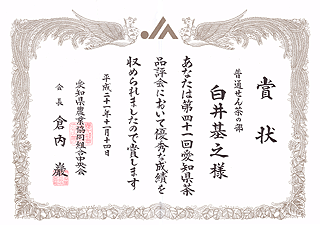 賞状
普通せん茶の部
白井基之様
あなたは第四十一回愛知県茶
品評会において優秀な成績を
収められましたので賞します
平成二十一年十一月十四日
愛知県農業協同組合中央会
会長 倉内 巌